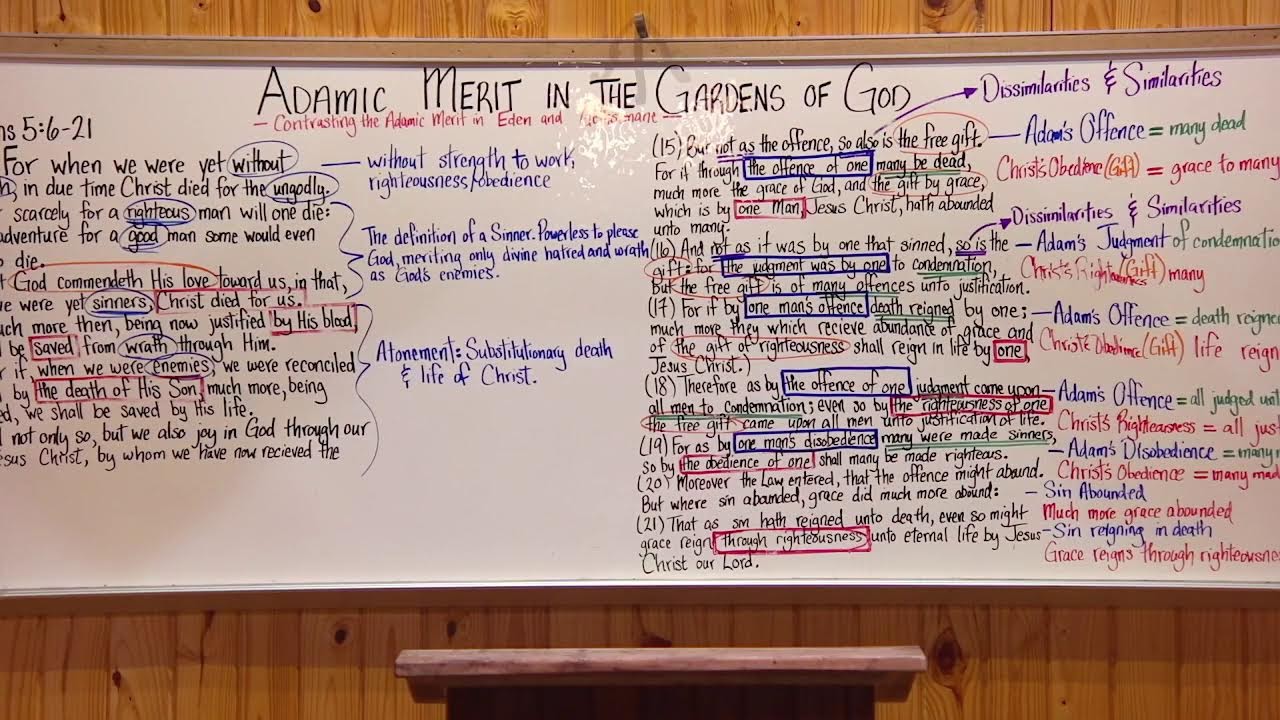 ADAMIC MERIT IN THE GARDENS OF GOD
— Contrasting the Adamic Merit in Eden and
ns 5:6-21
For when we were yet without
h, in due time Christ died for the ungodly.
scarcely for a righteous man will one die:
adventure for a good man some would even
o die.
t God commendeth His love toward us, in that,
ve were yet sinners, Christ died for us.
uch more then, being now justified by His blood,
l be saved from wrath through Him.
r if, when we were enemies, we were reconciled
d by the death of His Son, much more, being
ed, we shall be saved by His life.
d not only so, but we also joy in God through our
esus Christ, by whom we have now recieved the
— without strength to work,
righteousness/obedience
The definition of a Sinner. Powerless to please
God, meriting only divine hatred and wrath
as God's enemies.
Atonement: Substitutionary death
& life of Christ.
(15) But not as the offence, so also is the free gift.
For if through the offence of one many be dead,
much more the grace of God, and the gift by grace,
which is by one Man, Jesus Christ, hath abounded
unto many.
(16) And not as it was by one that sinned, so is the
gift: for the judgment was by one to condemnation,
but the free gift is of many offences unto justification.
(17) For if by one man's offence death reigned by one;
much more they which recieve abundance of grace and
of the gift of righteousness shall reign in life by one,
Jesus Christ.)
(18) Therefore as by the offence of one judgment came upon
all men to condemnation; even so by the righteousness of one
the free gift came upon all men unto justification of life.
(19) For as by one man's disobedience many were made sinners,
so by the obedience of one shall many be made righteous.
(20) Moreover the Law entered, that the offence might abound.
But where sin abounded, grace did much more abound:
(21) That as sin hath reigned unto death, even so might
grace reign through righteousness unto eternal life by Jesus
Christ our Lord.
Dissimilarities & Similarities
— Adam's Offence = many dead
Christ's Obedience (Gift) = grace to many
Dissimilarities & Similarities
— Adam's Judgment of condemnation
Christ's (Gift) many
— Adam's Offence = death reigne
Christ's Obedience (Gift) life reign
— Adam's Offence = all judged unt
Christ's Righteousness = all jus
— Adam's Disobedience = many
Christ's Obedience = many mad
— Sin Abounded
Much more grace abounded
— Sin reigning in death
Grace reigns through righteousne